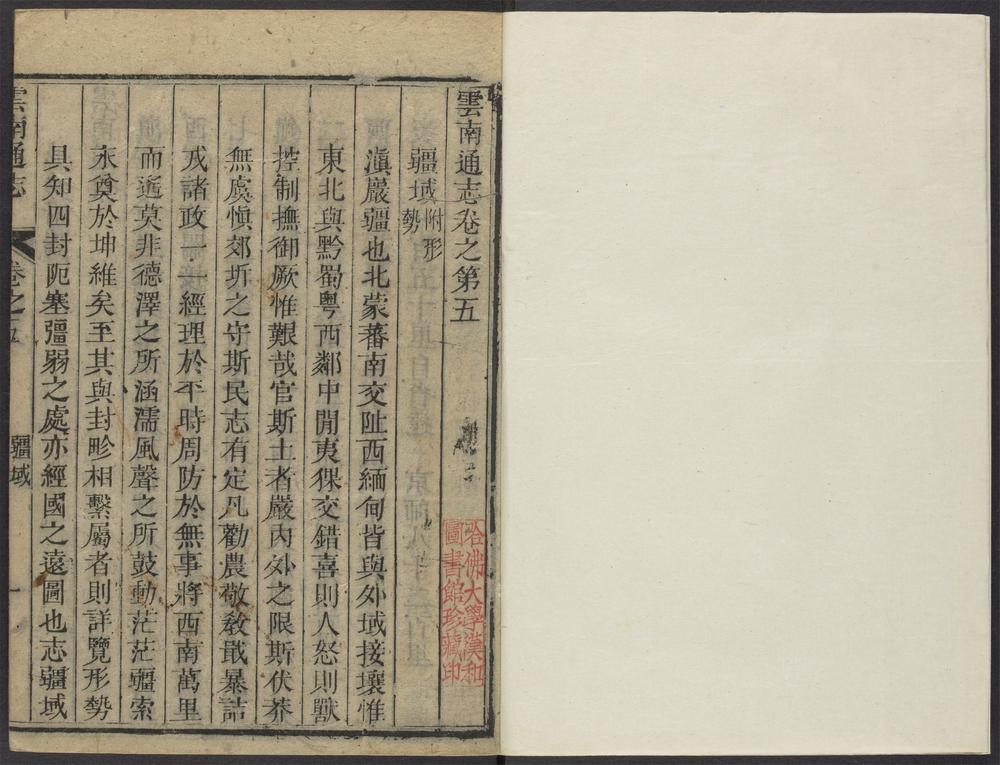 雲南通志卷之第五
疆域附形勢
滇巖疆也北蒙蕃南交阯西緬甸皆與外域接壤惟
東北與黔蜀粤西鄰中閒夷猓交錯喜則人怒則獸
控制撫御厥惟艱哉官斯土者嚴內外之限斯伏莽
無虞愼郊圻之守斯民志有定凡勸農敬敎戢暴詰
戎諸政一一經理於平時周防於無事將西南萬里
而遥莫非德澤之所涵濡風聲之所鼓動茫茫疆索
永奠於坤維矣至其與封畛相繫屬者則詳覽形勢
具知四封阨塞彊弱之處亦經國之遠圖也志疆域
雲南通志
卷之五
疆域
一
哈佛大學漢和
圖書館珍藏印